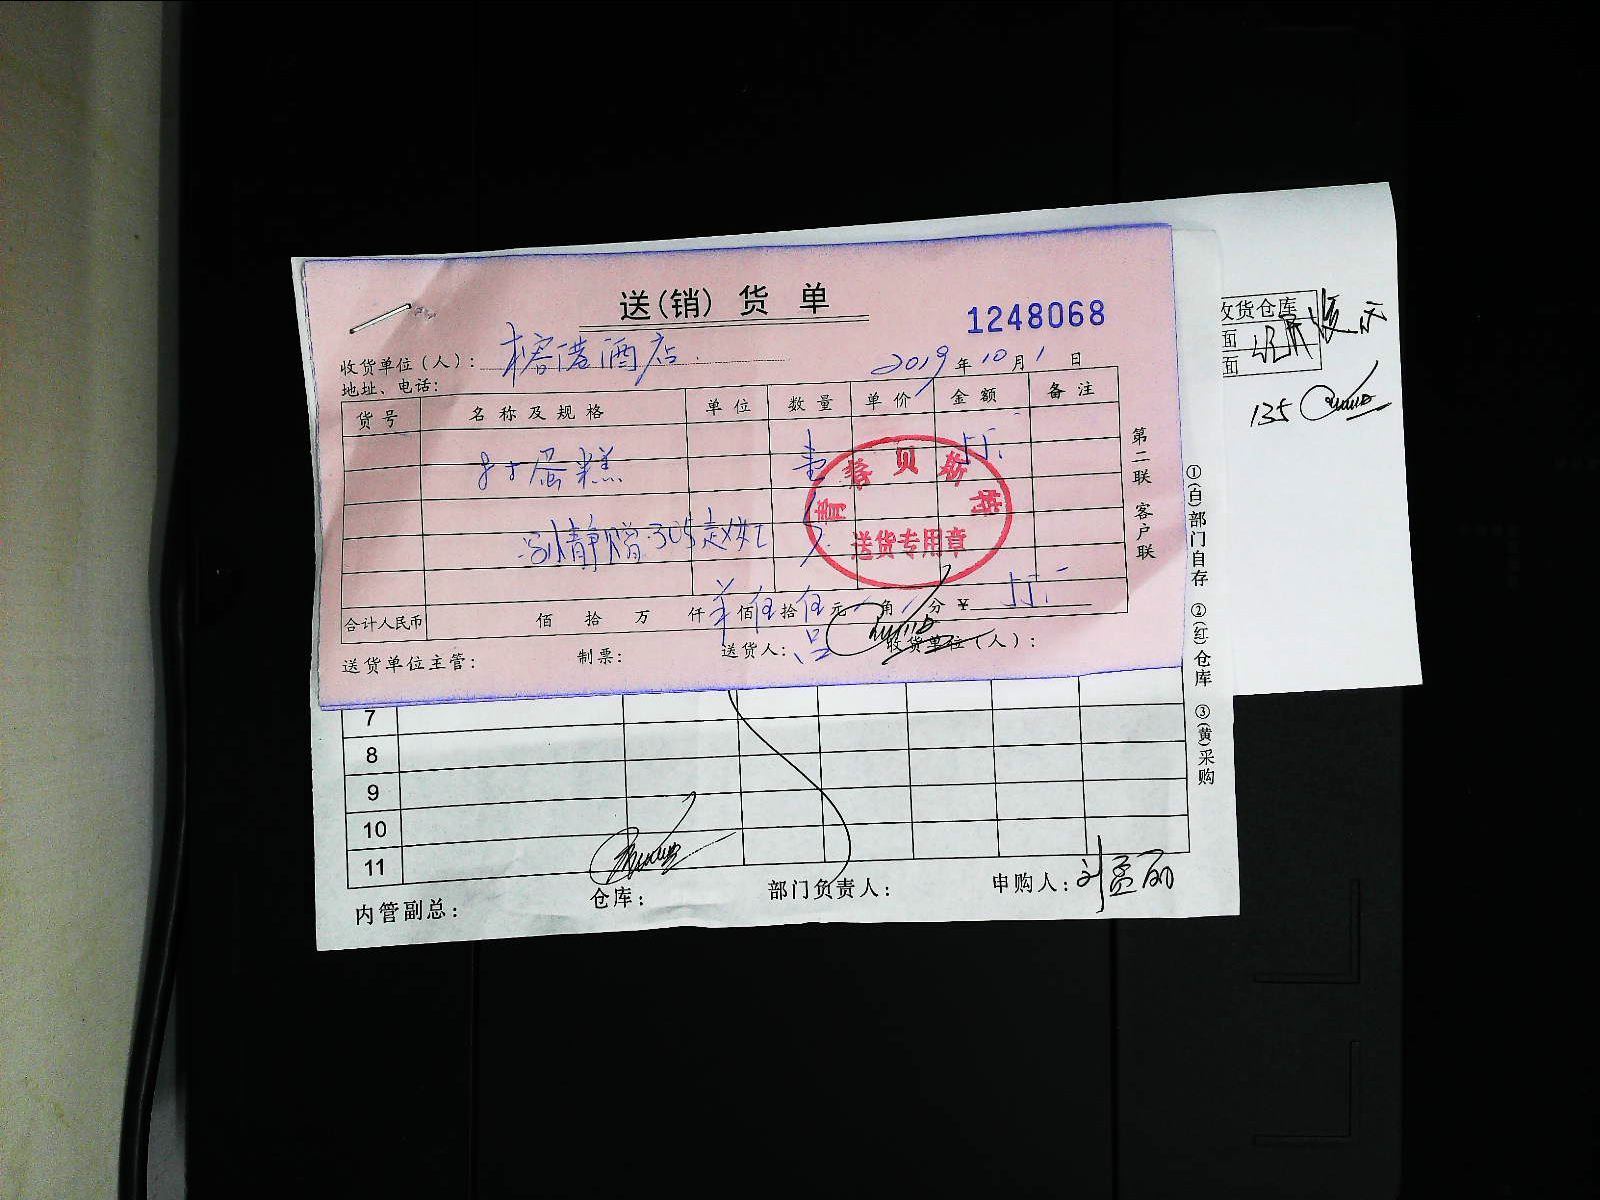 送(销)货单
1248068
收货单位(人):榕港酒店
2019年10月1日
地址、电话:
货号 名称及规格 单位 数量 单价 金额 备注
8寸蛋糕 壹 55.
青春贝斯特
送货专用章
赠305
合计人民币 佰 拾 万 仟 佰伍拾伍元 角 分 ¥55.
送货单位主管: 制票: 送货人: 收货单位(人):
第二联 客户联
7
8
9
10
11
内管副总: 仓库: 部门负责人: 申购人:刘孟丽
①(白)部门自存 ②(红)仓库 ③(黄)采购
收货仓库
面
面
135